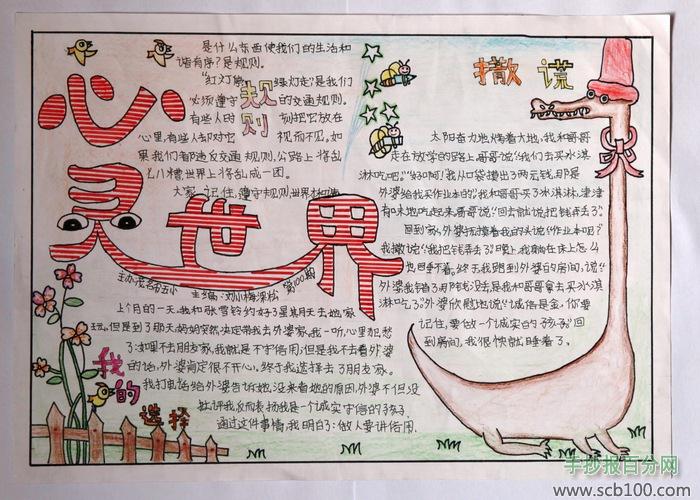 心灵世界
规则
是什么东西使我们的生活和
谐有序?是规则。
"红灯停 绿灯走"是我们
必须遵守 的交通规则。
有些人时 刻把它放在
心里,有些人却对它 视而不见,如
果我们都违反交通规则,公路上将乱
七八糟世界上将乱成一团。
大家 记住,遵守规则,世界
主办:茂名市五小 主编:刘小梅 梁松 第100期
撒谎
太阳奋力地烤着大地,我和哥哥
走在放学的路上哥哥说:"我们去买冰淇
淋吃吧。""好啊!"我从口袋摸出了两元钱,那是
外婆给我买作业本的。我和哥哥买了冰淇淋,津津
有味地吃起来。哥哥说:"回去就说把钱弄丢了。"
回到家,外婆抚摸着我的头说:"作业本呢?"
我撒说:"我把钱弄丢了。"晚上,我躺在床上怎么
也睡不着。终于我跑到外婆的房间,说:"
外婆我错了,那钱没丢,是我和哥哥拿去买冰淇
淋吃了。"外婆欣慰地说:"诚信是金,你要
记住,要做一个诚实的孩子。"回
到房间,我很快就睡着了。
我的选择
上个月的一天,我和张雪铃约好了星期天去她家
玩。但是到了那天,妈妈突然决定带我去外婆家。我一听,心里犯愁
了:如果不去朋友家,我就是不守信用,但是我不去看外婆
的话,外婆肯定很不开心,终于我选择去了朋友家。
我打电话给外婆告诉她,没来看她的原因,外婆不但没
批评我,反而表扬我是一个诚实守信的孩子。
通过这件事情,我明白了:做人要讲信用。
手抄报百分网
www.scb100.com